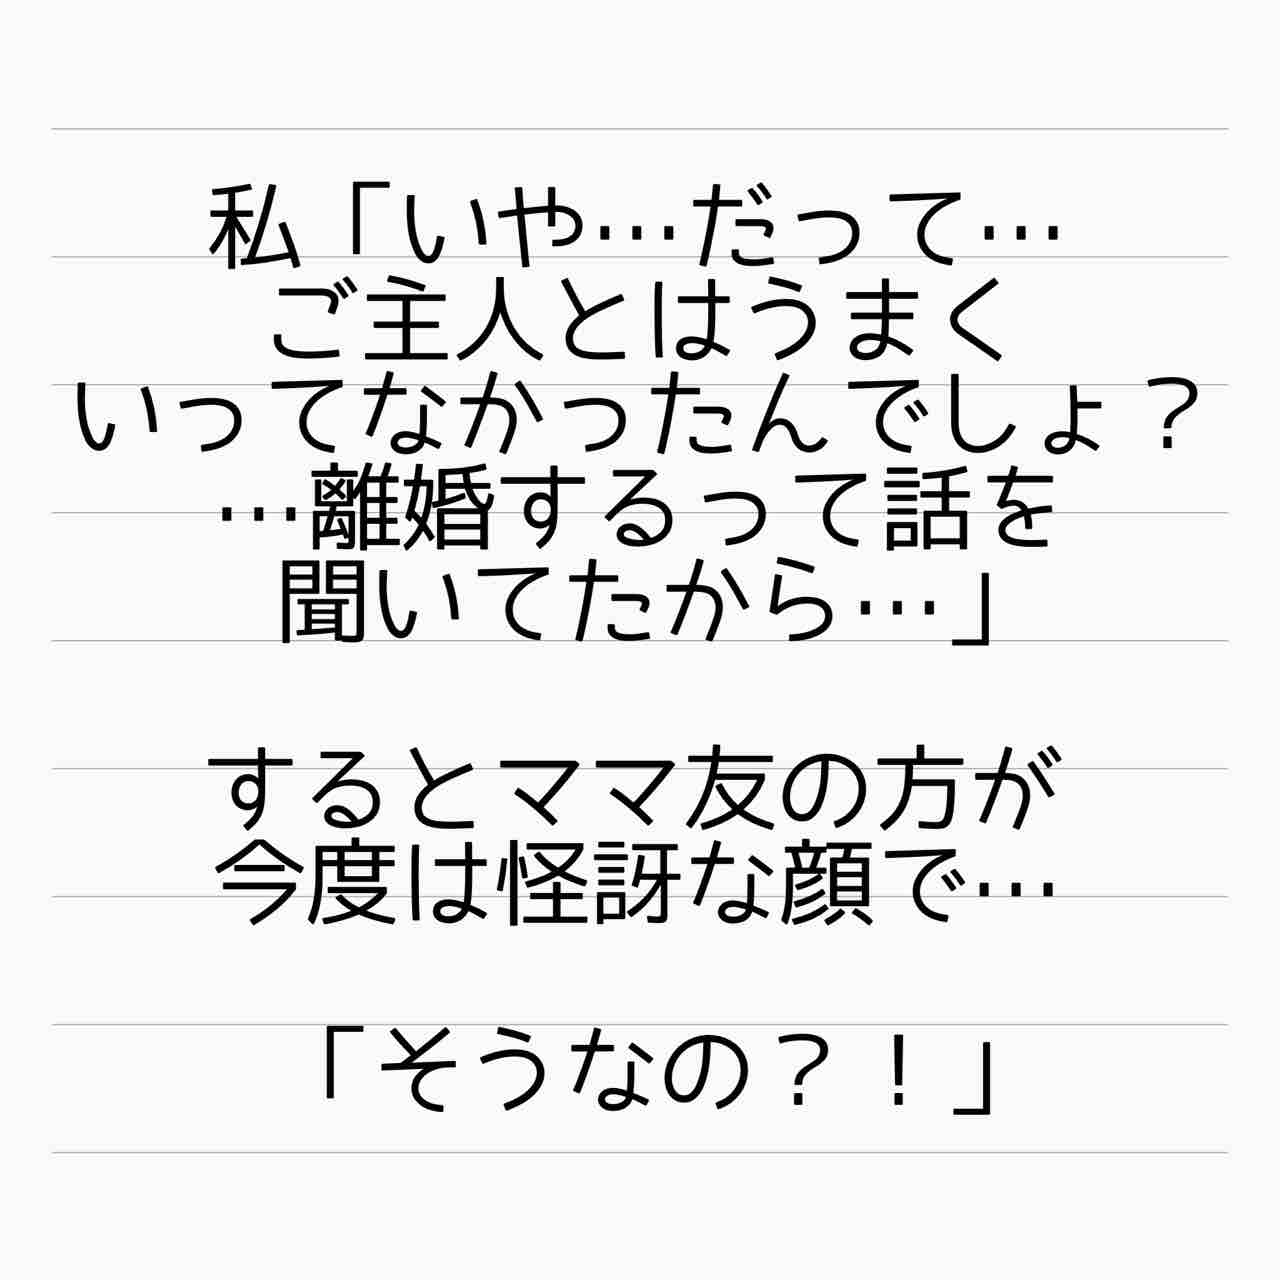 私「いや…だって…
ご主人とはうまく
いってなかったんでしょ？
…離婚するって話を
聞いてたから…」
するとママ友の方が
今度は怪訝な顔で…
「そうなの？！」